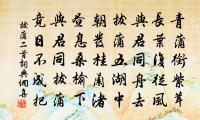 青蒲銜紫茸
長葉復從風
與君同舟去
拔蒲五湖中
朝發桂蘭渚
晝息桑榆下
與君同拔蒲
竟日不成把
拔蒲二首詞典網集